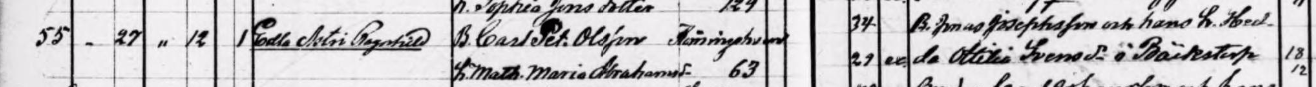 h. Sophia Jons dotter 129
55 - 27 " 12 1 Edla Astri Ragnhild B. Carl Pet. Olsson 34 B. Jonas Josephsson och hans h. Hed-
h. Math. Maria Abrahamsd. 63 29 da Ottilia Svensd. i Bäckstorp 18/12